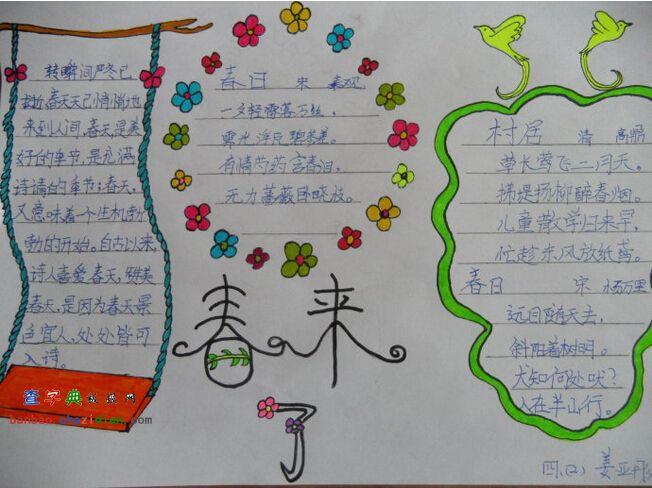 转瞬间严冬已
春天已悄悄地
来到人间,春天是美
好的季节,是充满
诗情的季节;春天,
又意味着一个生机勃
勃的开始。自古以来
诗人喜爱春天,赞美
春天,是因为春天景
色宜人,处处皆可
入诗。
春日 宋 秦观
一夕轻雷落万丝,
霁光浮瓦碧参差。
有情芍药含春泪,
无力蔷薇
春来
了
村居 清 高鼎
草长莺飞二月天。
堤杨柳醉春烟。
儿童散学归来早,
忙趁东风放纸鸢。
春日 宋 杨万里
远目随天去,
斜阳着树明。
犬知何处吠?
人在半山行。
四、(2) 姜亚
查字典